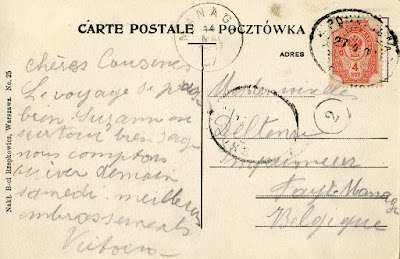 CARTE POSTALE
POCZTÓWKA
ADRES
MANAGE
14
07
4
Chères Cousines
Le voyage se passe
bien Suzanne
surtout bien sage
nous comptons
arriver demain
samedi. meilleurs
embrassements
Mademoiselle
Deltenre
Fayt-Manage
Belgique
2
Nakł. B-ci Rzepkowicz, Warszawa. No. 25